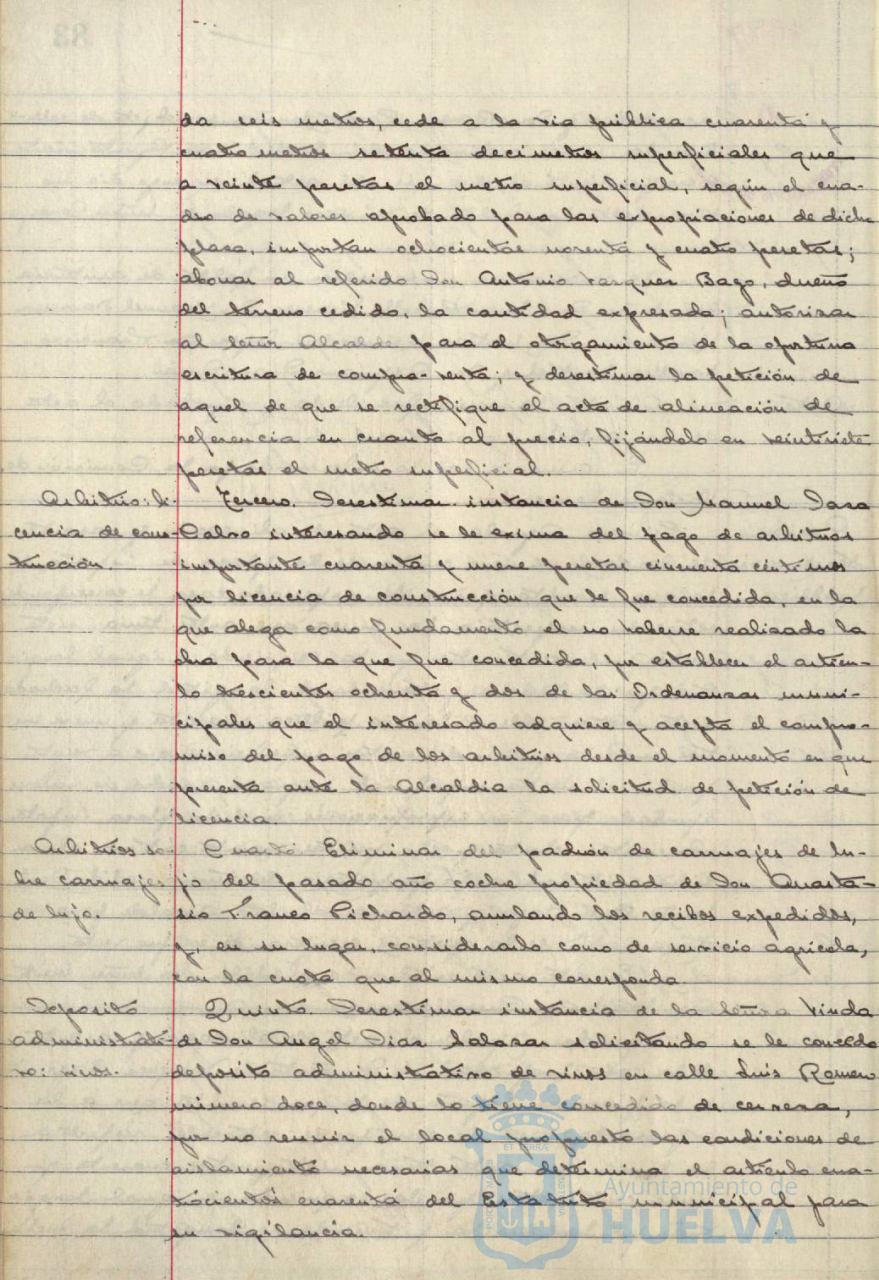 da seis metros, cede a la via pública cuarenta y
cuatro metros setenta decimetros superficiales que
a veinte pesetas el metro superficial, según el cua-
dro de valores aprobado para las expropiaciones de dicha
plaza, importan ochocientas noventa y cuatro pesetas;
abonar al referido Don Antonio Vazquez Bago, dueño
del terreno cedido, la cantidad expresada; autorizar
al Señor Alcalde para el otorgamiento de la oportuna
escritura de compra-venta; y desestimar la petición de
aquel de que se rectifique el acta de alineación de
referencia en cuanto al precio, fijándolo en veintisiete
pesetas el metro superficial.
Arbitrio: li-
cencia de cons-
trucción.
Tercero. Desestimar instancia de Don Manuel Daza
Calvo interesando se le exima del pago de arbitrios
importante cuarenta y nueve pesetas cincuenta céntimos
por licencia de construcción que le fue concedida, en la
que alega como fundamento el no haberse realizado la
obra para la que fue concedida, por establecer el artícu-
lo trescientos ochenta y dos de las Ordenanzas muni-
cipales que el interesado adquiere y acepta el compro-
miso del pago de los arbitrios desde el momento en que
presenta ante la Alcaldia la solicitud de petición de
licencia.
Arbitrios so-
bre carruajes
de lujo.
Cuarto Eliminar del padrón de carruajes de lu-
jo del pasado año coche propiedad de Don Anasta-
sio Franco Pichardo, anulando los recibos expedidos,
y, en su lugar, considerarlo como de servicio agrícola,
con la cuota que al mismo corresponda.
Deposito
administrati-
vo: vinos.
Quinto. Desestimar instancia de la Señora Viuda
de Don Angel Diaz Salazar solicitando se le conceda
deposito administrativo de vinos en calle Luis Romero
número doce, donde lo tiene concedido de cerveza,
por no reunir el local propuesto las condiciones de
aislamiento necesarias que determina el artículo cua-
trocientos cuarenta del Estatuto municipal para
su vigilancia.
Ayuntamiento de
HUELVA